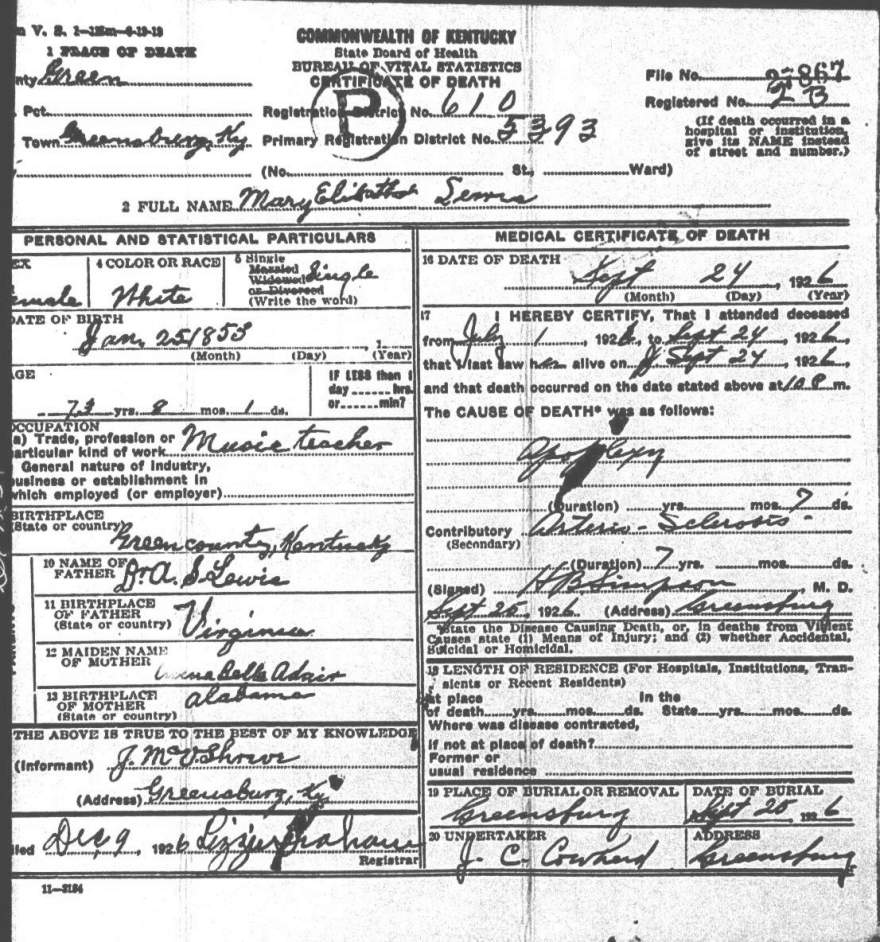 V. S. 1—12m—6-19-19
COMMONWEALTH OF KENTUCKY
State Board of Health
BUREAU OF VITAL STATISTICS
CERTIFICATE OF DEATH
1 PLACE OF DEATH
nty Green
Pct.
Town Greensburg, Ky
P
Registration District No. 610
Primary Registration District No. 5393
File No. 27867
Registered No. 2 B
(If death occurred in a
hospital or institution,
give its NAME instead
of street and number.)
(No. St., Ward)
2 FULL NAME Mary Lewis
PERSONAL AND STATISTICAL PARTICULARS
EX
emale
4 COLOR OR RACE
White
5 Single
Married
Widowed
or Divorced
(Write the word)
Single
DATE OF BIRTH
Jan, 25 1853, 1
(Month) (Day) (Year)
AGE
73 yrs. 8 mos. 1 ds.
IF LESS than 1
day hrs.
or min?
OCCUPATION
a) Trade, profession or
articular kind of work Music teacher
General nature of industry,
usiness or establishment in
which employed (or employer)
BIRTHPLACE
(State or country)
Green county, Kentucky
10 NAME OF
FATHER Dr. A. S. Lewis
11 BIRTHPLACE
OF FATHER
(State or country) Virginia
12 MAIDEN NAME
OF MOTHER
Belle Adair
13 BIRTHPLACE
OF MOTHER
(State or country) Alabama
THE ABOVE IS TRUE TO THE BEST OF MY KNOWLEDGE
(Informant) J. Mc
(Address) Greensburg, Ky
iled Dec 9, 1926 Lizzie Graham
Registrar
11—3184
MEDICAL CERTIFICATE OF DEATH
16 DATE OF DEATH
Sept 24, 1926
(Month) (Day) (Year)
17 I HEREBY CERTIFY, That I attended deceased
from July 1, 1926, to Sept 24, 1926,
that I last saw her alive on Sept 24, 1926,
and that death occurred on the date stated above at 10 P m.
The CAUSE OF DEATH* was as follows:
Apoplexy
(Duration) yrs. mos. 7 ds.
Contributory Arterio-Sclerosis-
(Secondary)
(Duration) 7 yrs. mos. ds.
(Signed) H B Simpson, M. D.
Sept 25, 1926 (Address) Greensburg
*State the Disease Causing Death, or, in deaths from Violent
Causes state (1) Means of Injury; and (2) whether Accidental,
Suicidal or Homicidal.
18 LENGTH OF RESIDENCE (For Hospitals, Institutions, Tran-
sients or Recent Residents)
At place In the
of death yrs. mos. ds. State yrs. mos. ds.
Where was disease contracted,
if not at place of death?
Former or
usual residence
19 PLACE OF BURIAL OR REMOVAL
Greensburg
DATE OF BURIAL
Sept 25 1926
20 UNDERTAKER
J. C. Cowherd
ADDRESS
Greensburg